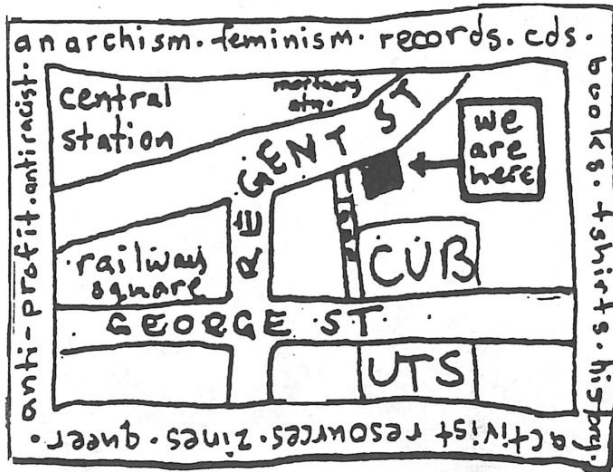 anarchism.feminism.records.cds.
books.tshirts.history.
activist resources.zines.queer.
anti-profit.antiracist.
central
station
mortuary
stn.
REGENT ST
we
are
here
CUB
railway
square
GEORGE ST.
UTS